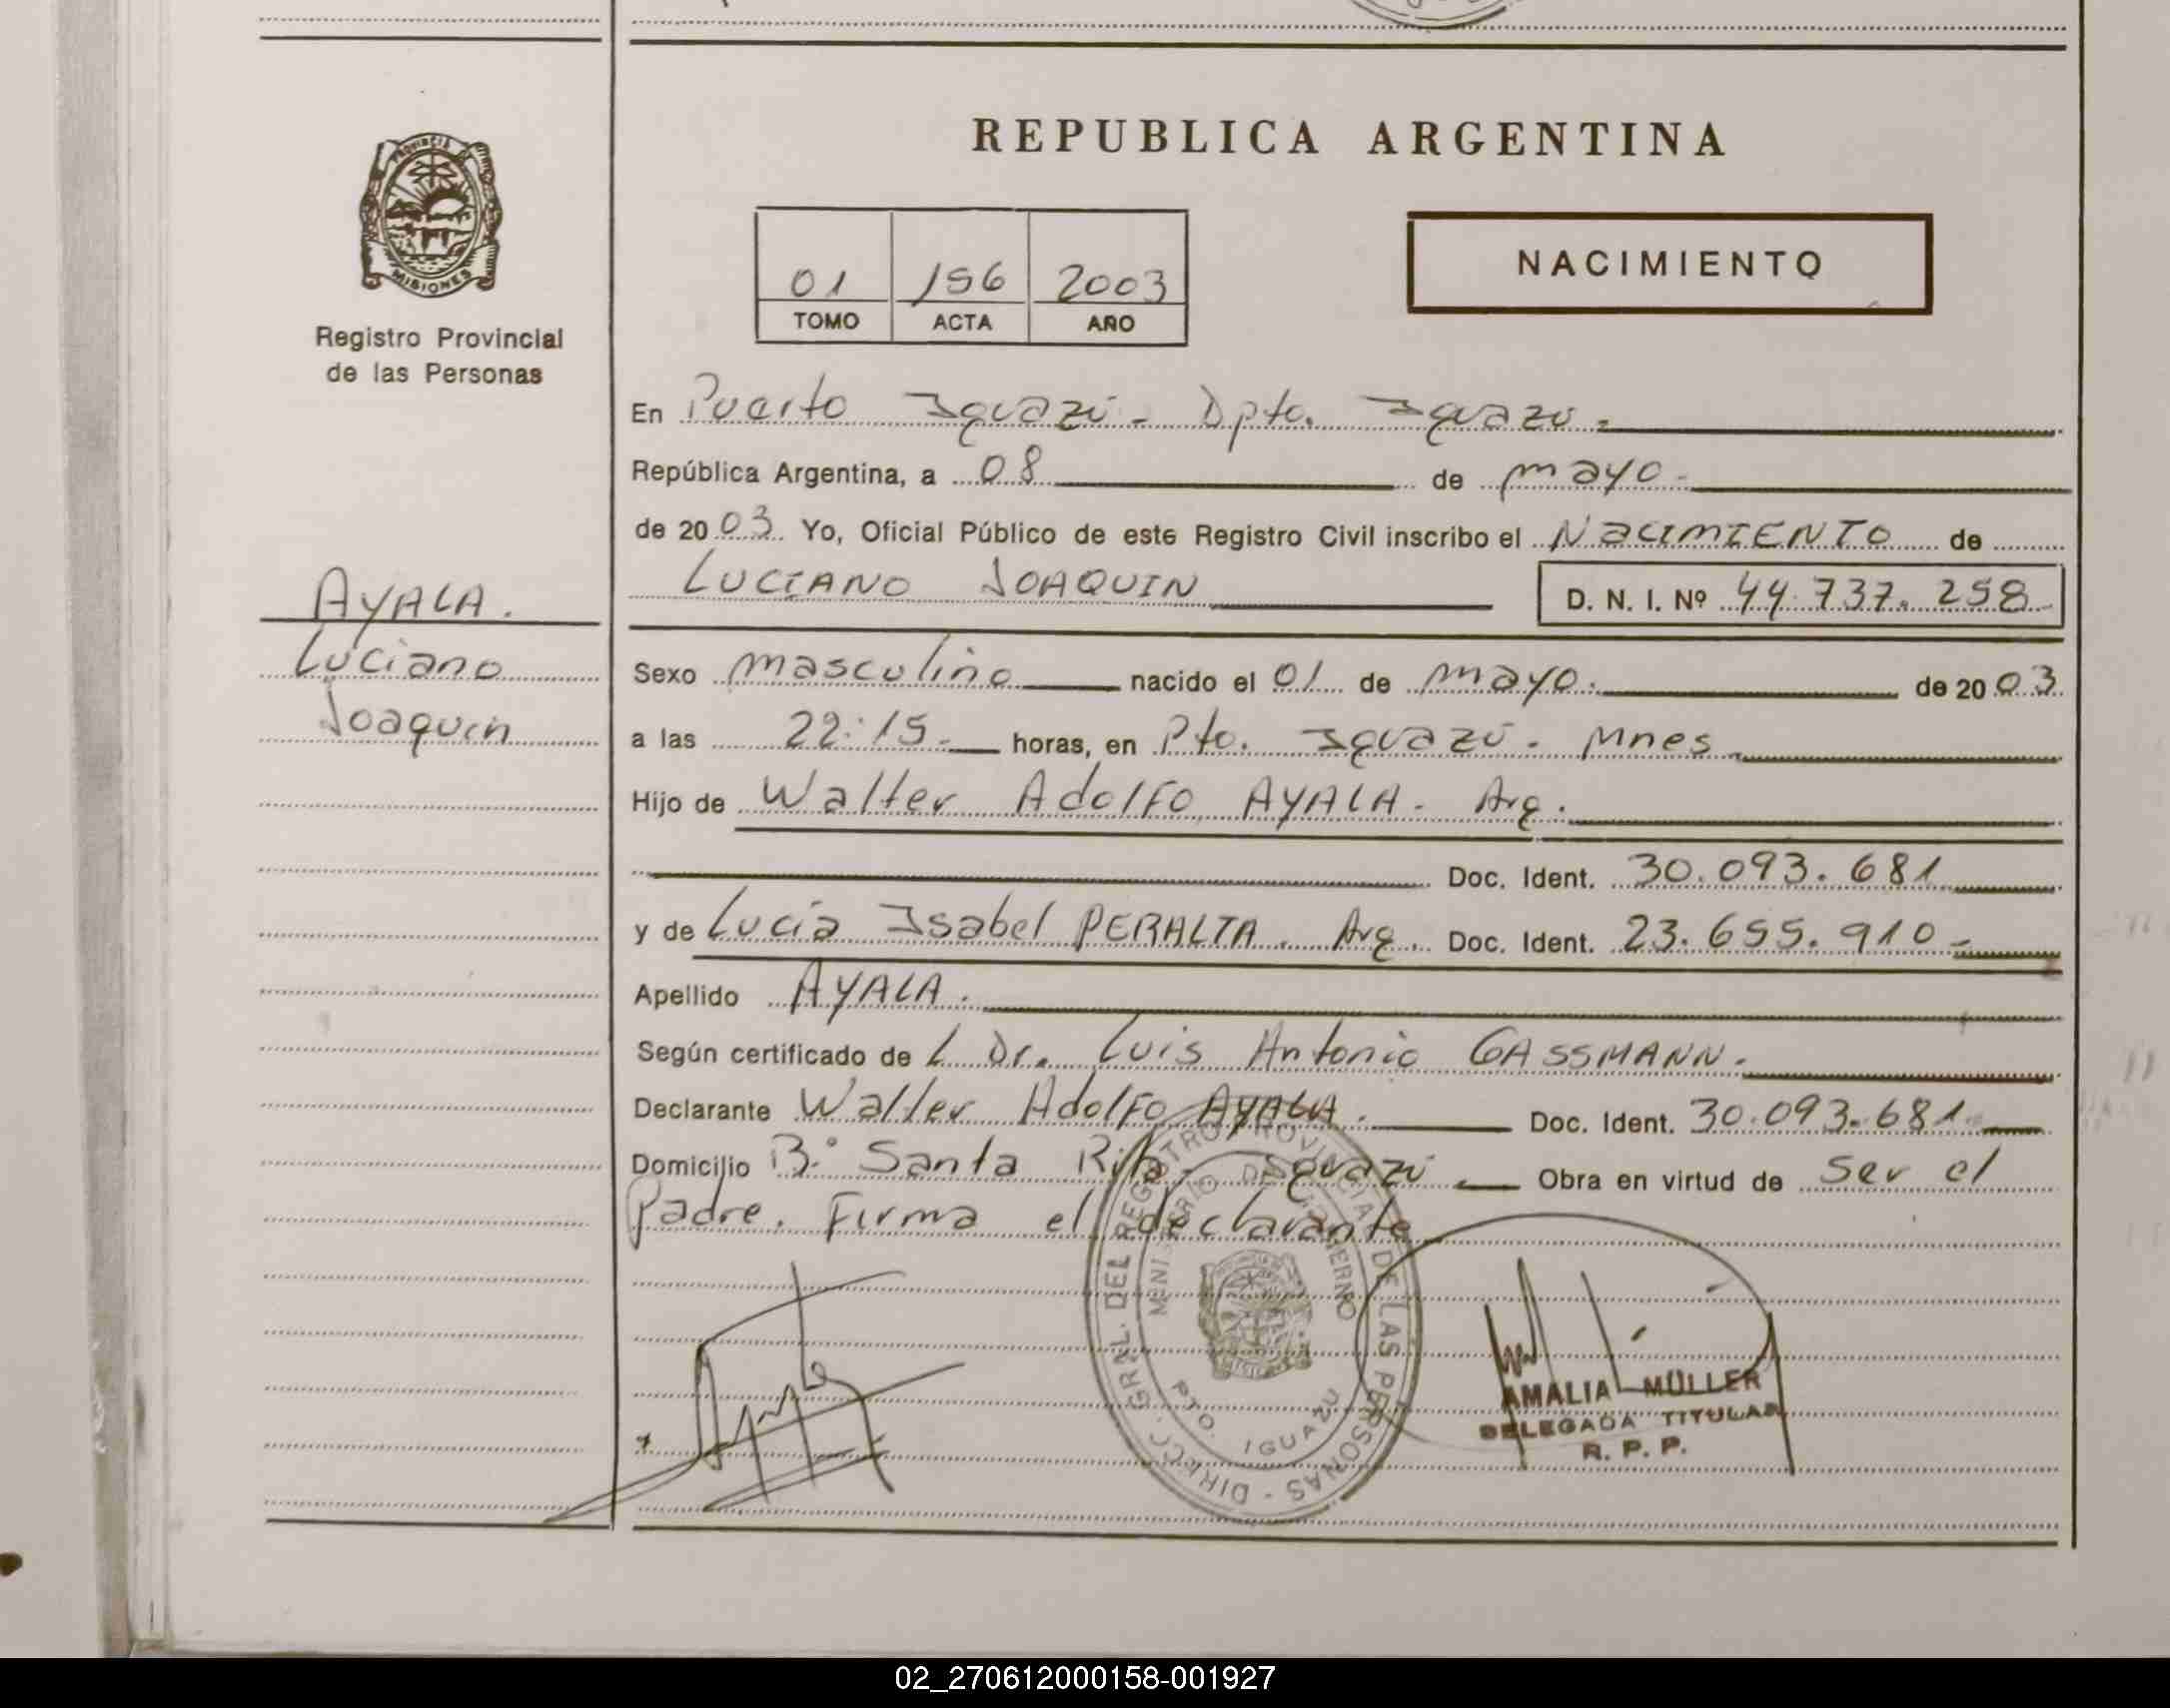 REPUBLICA ARGENTINA
PROVINCIA DE MISIONES
Registro Provincial
de las Personas
01 156 2003
TOMO ACTA AÑO
NACIMIENTO
En Puerto Iguazú - Dpto. Iguazú.
República Argentina, a 08 de mayo.
de 2003. Yo, Oficial Público de este Registro Civil inscribo el NACIMIENTO de
LUCIANO JOAQUIN D. N. I. Nº 44.737.258
AYALA.
Luciano
Joaquin
Sexo masculino nacido el 01 de mayo. de 2003
a las 22:15. horas, en Pto. Iguazú. Mnes.
Hijo de Walter Adolfo AYALA. Arg.
Doc. Ident. 30.093.681
y de Lucía Isabel PERALTA. Arg. Doc. Ident. 23.655.910
Apellido AYALA.
Según certificado de L Dr. Luis Antonio GASSMANN.
Declarante Walter Adolfo AYALA. Doc. Ident. 30.093.681
Domicilio Bº Santa Rita. Iguazú. Obra en virtud de ser el
Padre. Firma el declarante
DIRECC. GRAL. DEL REGISTRO PROVINCIAL DE LAS PERSONAS -
MINISTERIO DE GOBIERNO
MISIONES
PTO. IGUAZU
AMALIA MÜLLER
DELEGADA TITULAR
R. P. P.
02_270612000158-001927